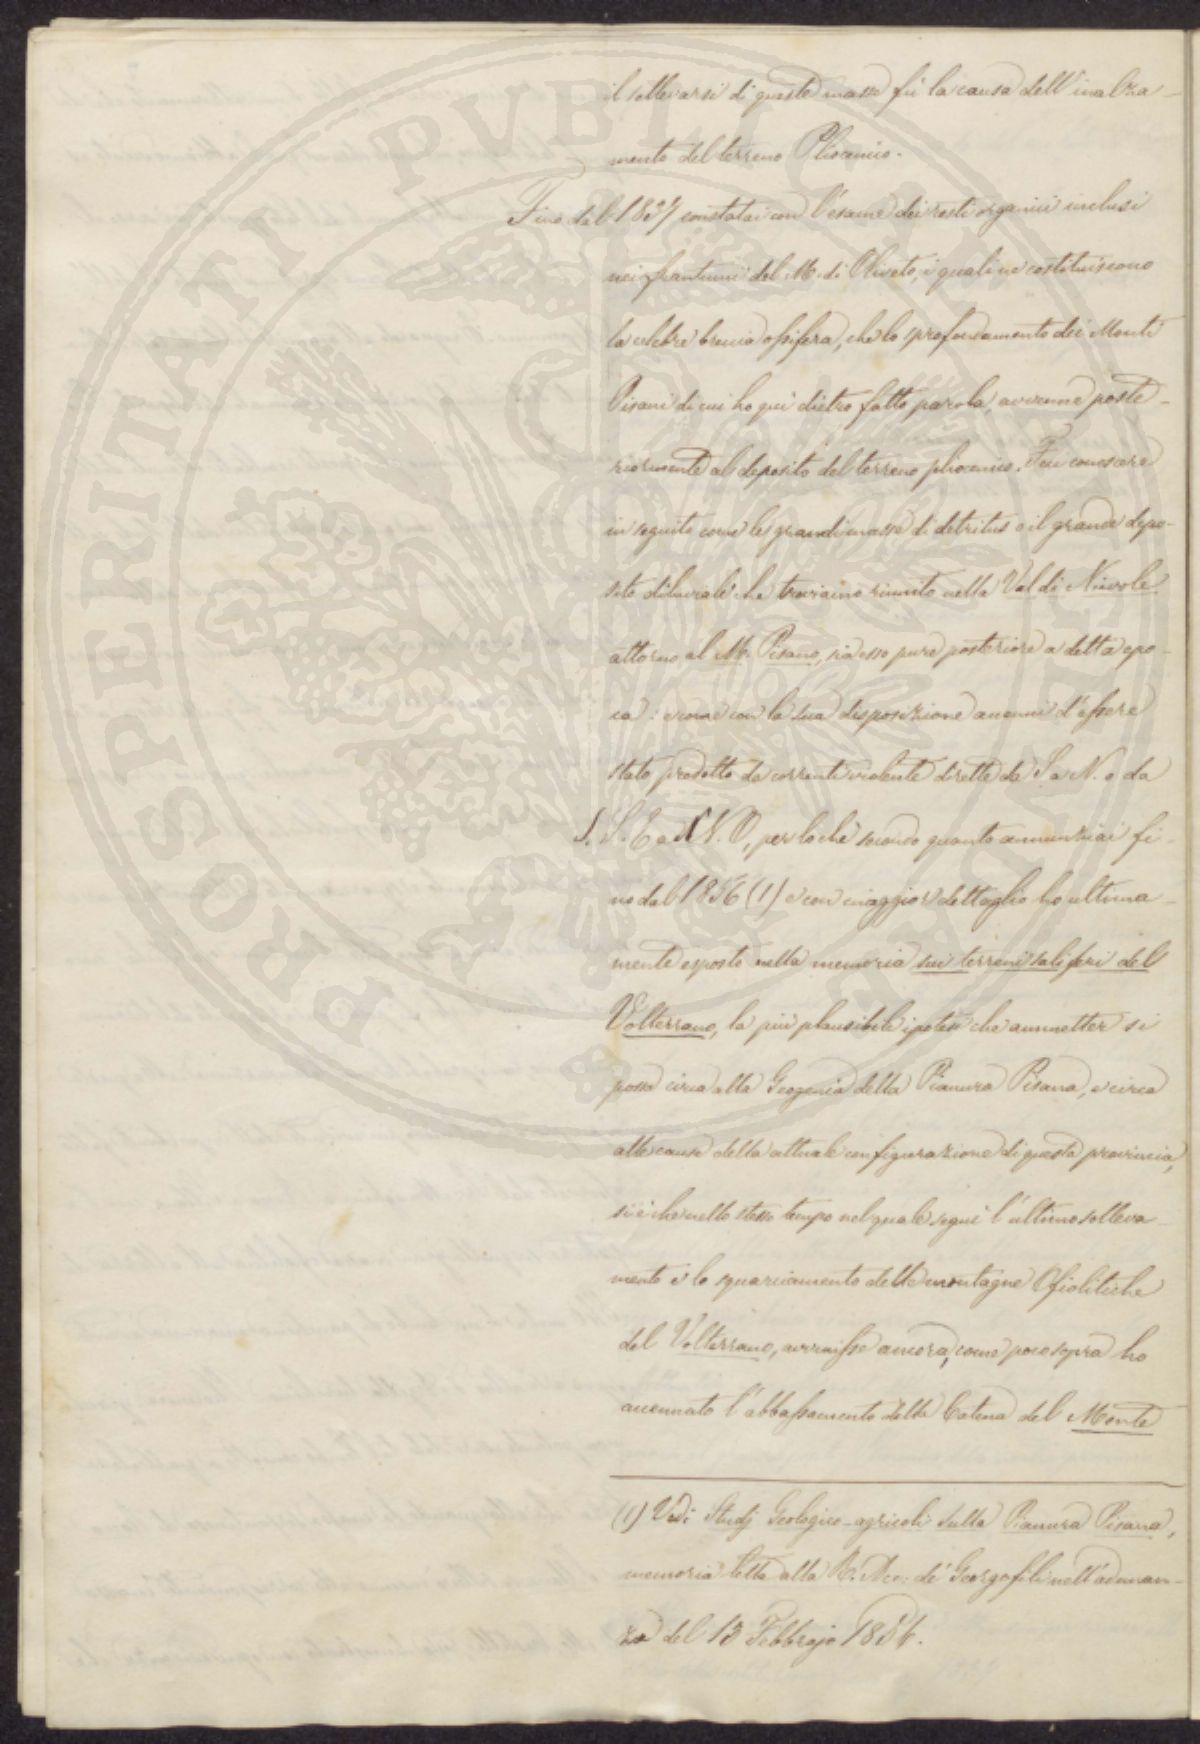 PROSPERITATI PUBLICAE
il sollevarsi di queste masse fù la causa dell'inalza-
mento del terreno Pliocenico.
Fino dal 1857 constatai con l'esame dei resti organici inclusi
nei frantumi del M. di Oliveto, i quali ne costituiscono
la celebre breccia ossifera, che lo sprofondamento dei Monti
Pisani di cui ho quì dietro fatto parola, avvenne poste-
riormente al deposito del terreno pliocenico. Feci conoscere
in seguito come le grandi masse di detritus o il grande depo-
sito diluviale che troviamo riunito nella Val di Nievole
attorno al M. Pisano, sia esso pure posteriore a detta epo-
ca: e come con la sua disposizione accenni d'essere
stato prodotto da correnti violente dirette da S a N. o da
S. S. E a N. O, per lo chè secondo quanto annunziai fi-
no dal 1856 (1) e con maggior dettaglio ho ultima-
mente esposto nella memoria sui terreni saliferi del
Volterrano, la più plausibile ipotesi che ammetter si
possa circa alla Geogenia della Pianura Pisana, e circa
alle cause della attuale configurazione di questa provincia,
si è che nello stesso tempo nel quale seguì l'ultimo solleva-
mento e lo squarciamento delle montagne Ofiolitiche
del Volterrano, avvenisse ancora, come poco sopra ho
accennato l'abbassamento della Catena del Monte
(1) Vedi Studj Geologico-agricoli sulla Pianura Pisana,
memoria letta alla R. Acc: de' Georgofili nell'adunan-
za del 13 Febbrajo 1856.